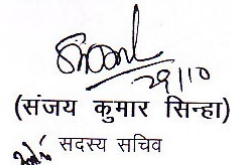 29/10
(संजय कुमार सिन्हा)
सदस्य सचिव